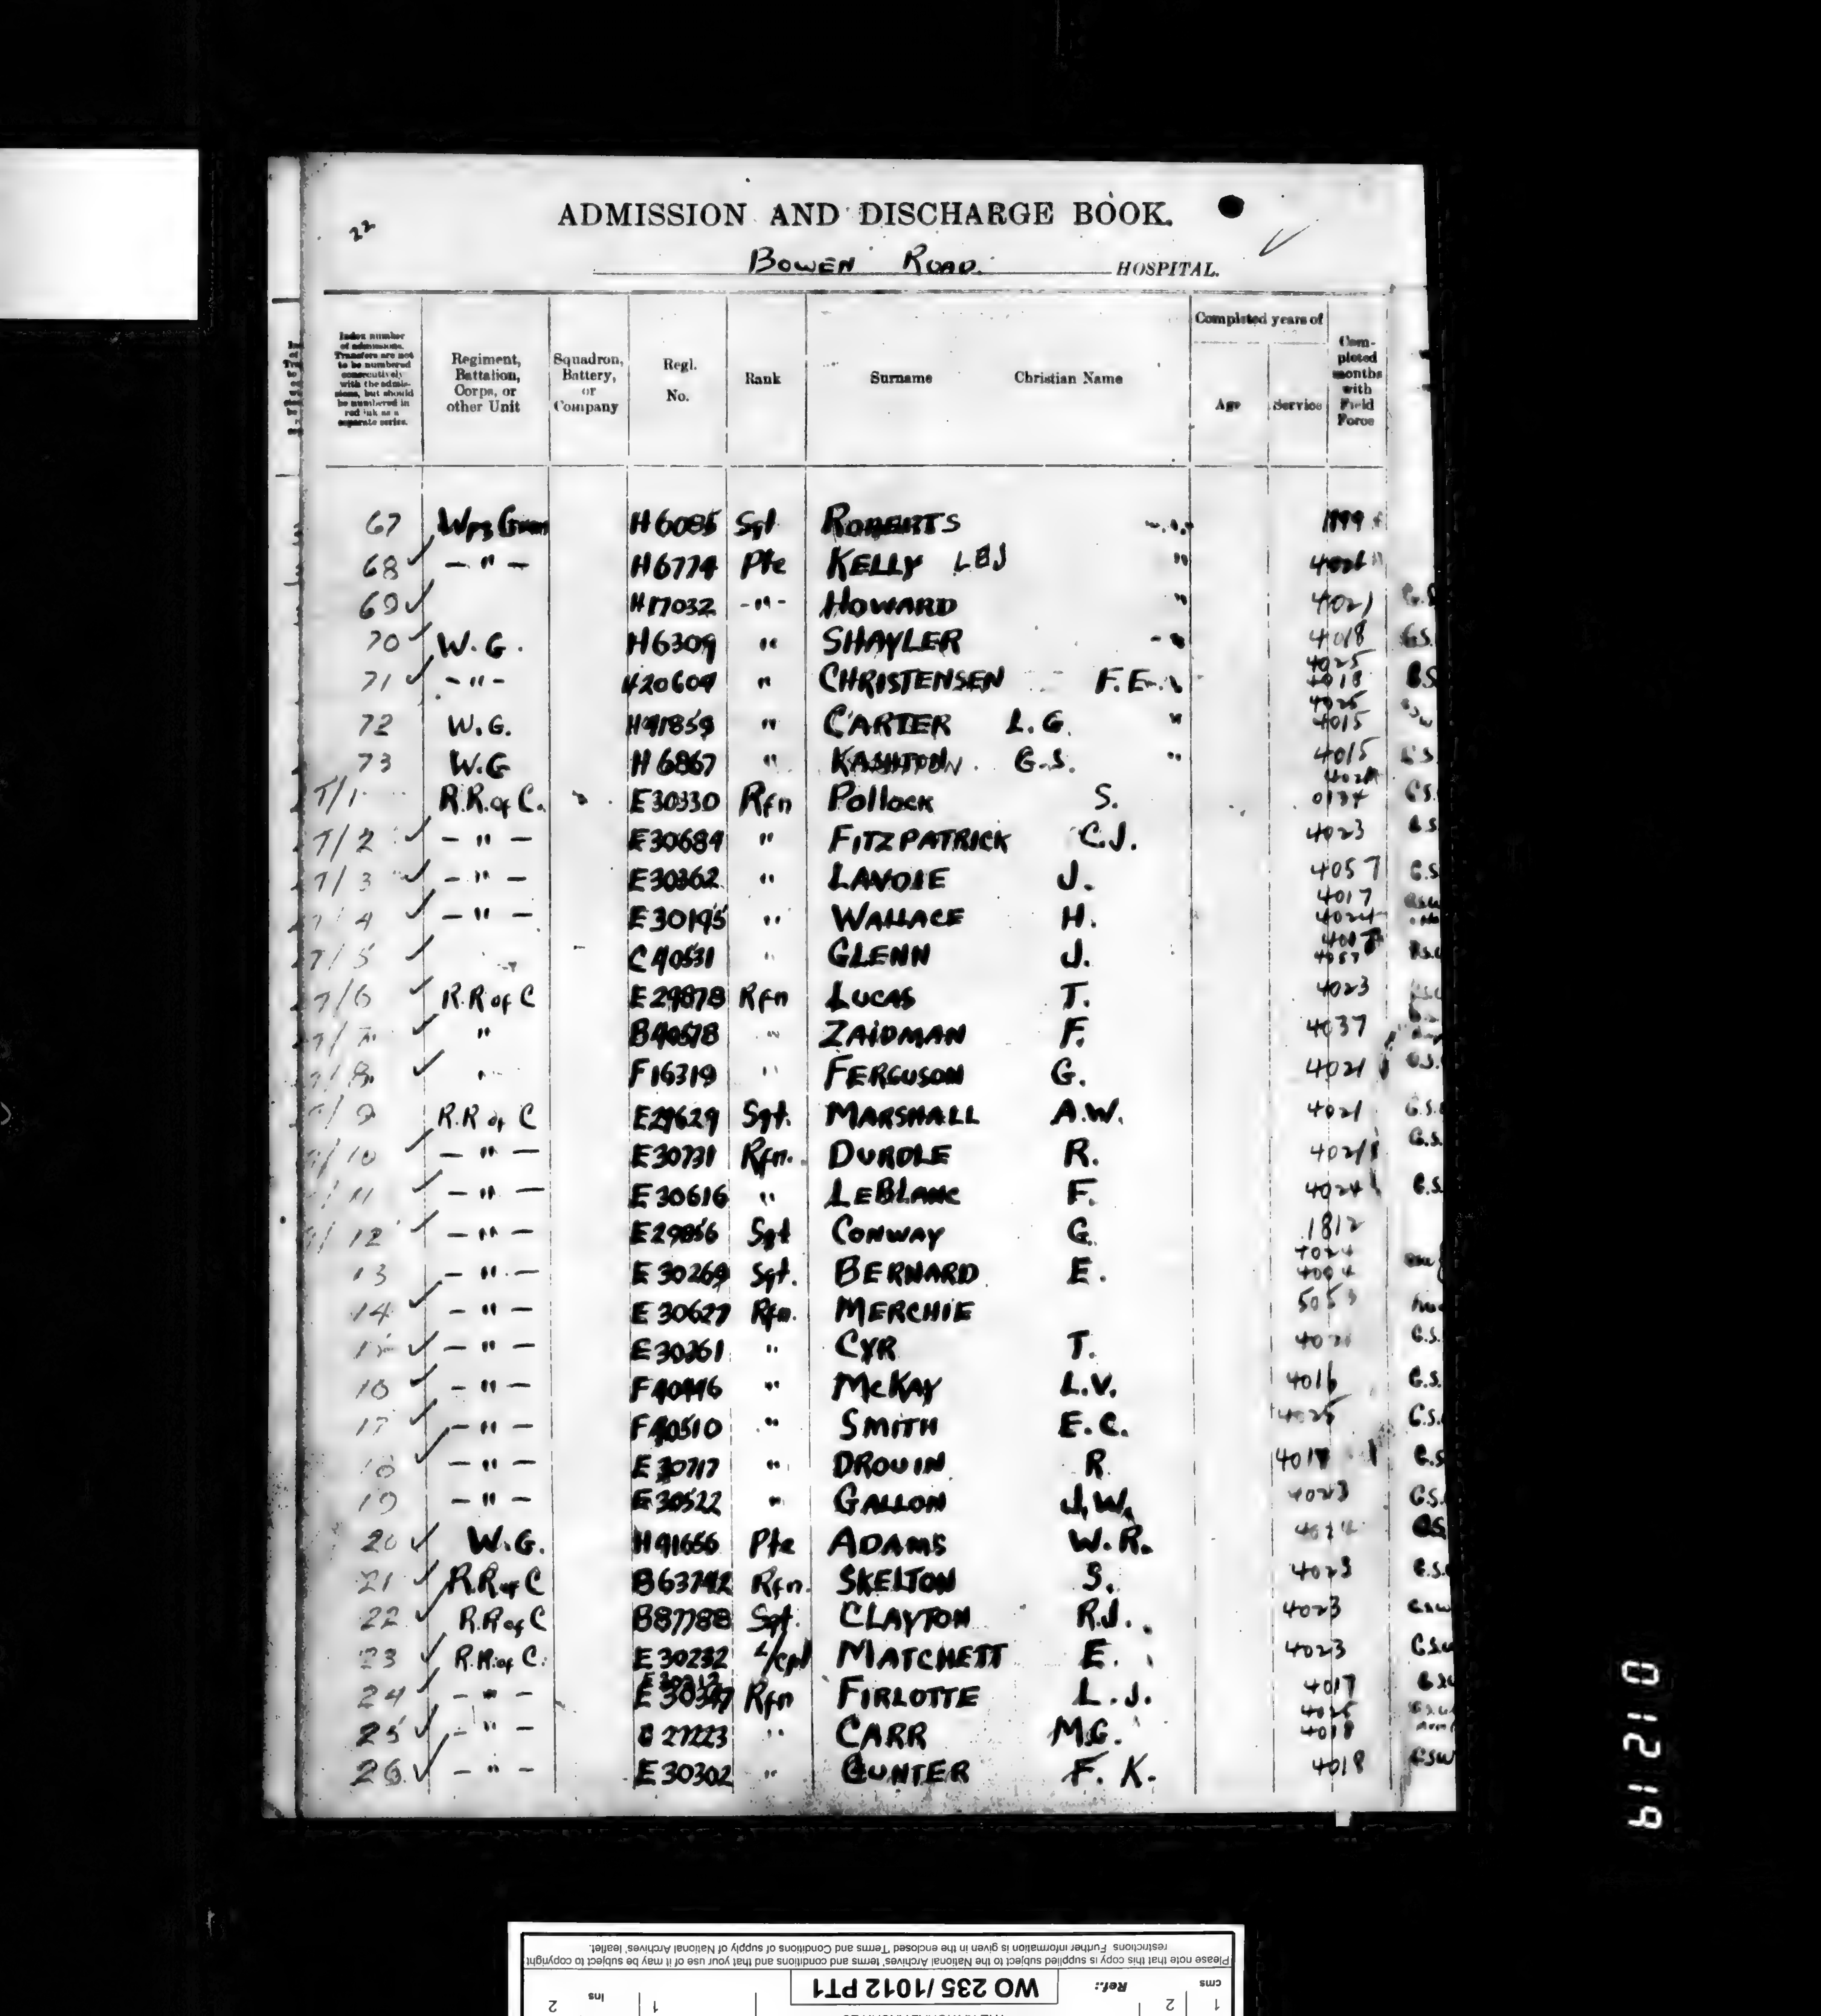 22
ADMISSION AND DISCHARGE BOOK.
BOWEN ROAD. HOSPITAL.
Index number of admissions. Transfers are not to be numbered consecutively with the admissions, but should be numbered in red ink as a separate series.
Regiment, Battalion, Corps, or other Unit
Squadron, Battery, or Company
Regl. No.
Rank
Surname
Christian Name
Completed years of
Age
Service
Completed months with Field Force
67 Wpg Gren H6085 Sgt ROBERTS 1999
68 -"- H6774 Pte KELLY LBJ "
69 H17032 -"- HOWARD " 4021
70 W.G. H6309 " SHAYLER 4018 G.S.
4025
71 -"- H20609 " CHRISTENSEN F.E. 4018
4025
72 W.G. H41859 " CARTER L.G. " 4015
73 W.G H6867 " KASHTON G.S. " 4015
T/1 R.R. of C. E30330 Rfn Pollock S. G.S.
T/2 -"- E30684 " FITZPATRICK C.J. 4023 G.S.
T/3 -"- E30362 " LAVOIE J. 4057 G.S.
4017
T/4 -"- E30195 " WALLACE H. 4024
T/5 C40531 " GLENN J. 4057
T/6 R.R of C E29878 Rfn LUCAS T. 4023
T/7 " B40578 " ZAIDMAN F. 4037
T/8 " F16319 " FERGUSON G. 4021 G.S.
T/9 R.R of C E29629 Sgt. MARSHALL A.W. 4021 G.S.
T/10 -"- E30731 Rfn. DURDLE R. 4021 G.S.
T/11 -"- E30616 " LEBLANC F. 4024 G.S.
T/12 -"- E29856 Sgt CONWAY G 1812
4024
13 -"- E30269 Sgt. BERNARD E. 4004
14 -"- E30627 Rfn. MERCHIE 5053
15 -"- E30361 " CYR T. 4021 G.S.
16 -"- F40446 " McKAY L.V. 4016 G.S.
17 -"- F40510 " SMITH E.C. 4025 G.S.
18 -"- E30717 " DROUIN R G.S
19 -"- E30522 " GALLON J.W. 4023 G.S.
20 W.G. H41656 Pte ADAMS W.R. 4024 G.S.
21 R.R of C B63742 Rfn. SKELTON S. 4023 G.S.
22 R.R of C B87788 Sgt. CLAYTON R.J. 4023 GSW
23 R.R. of C. E30232 L/cpl MATCHETT E. 4023 G.S.W
24 -"- E30347 Rfn FIRLOTTE L.J. 4017
4025
25 -"- B27223 " CARR M.G. 4018
26 -"- E30302 " GUNTER F.K. 4018 GSW
01219
Please note that this copy is supplied subject to the National Archives' terms and conditions and that your use of it may be subject to copyright
restrictions. Further information is given in the enclosed 'Terms and Conditions of supply of National Archives' leaflet.
cms 1 2 Ref.: WO 235 / 1012 PT1 1 ins 2